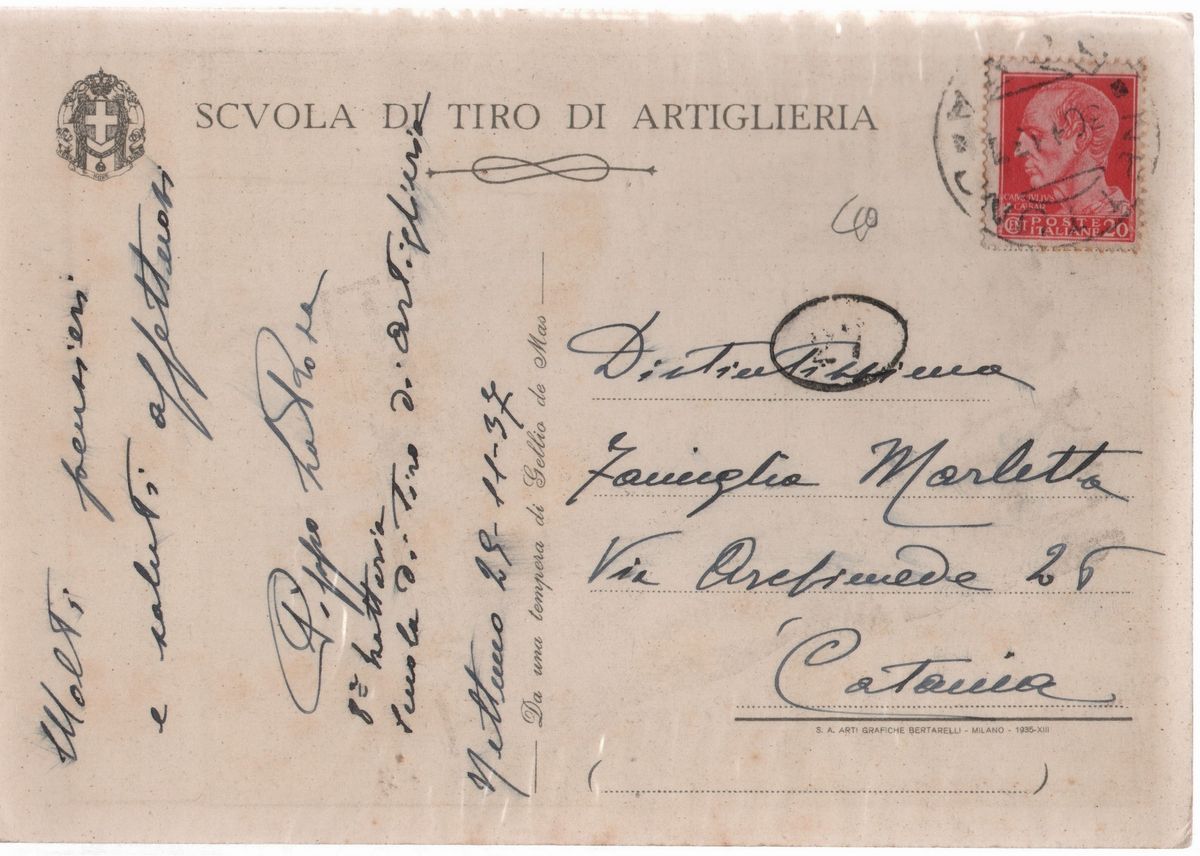 SCVOLA DI TIRO DI ARTIGLIERIA
Molti pensieri
e saluti affettuosi
Pippo La Rosa
8ª batteria
Scuola di tiro di artiglieria
Nettuno 29-11-37
Da una tempera di Gellio de Mas
CAIVS IVLIVS
CAESAR
CENT POSTE
ITALIANE 20
Distintissima
Famiglia Marletta
Via Archimede 26
Catania
S. A. ARTI GRAFICHE BERTARELLI - MILANO - 1935-XIII